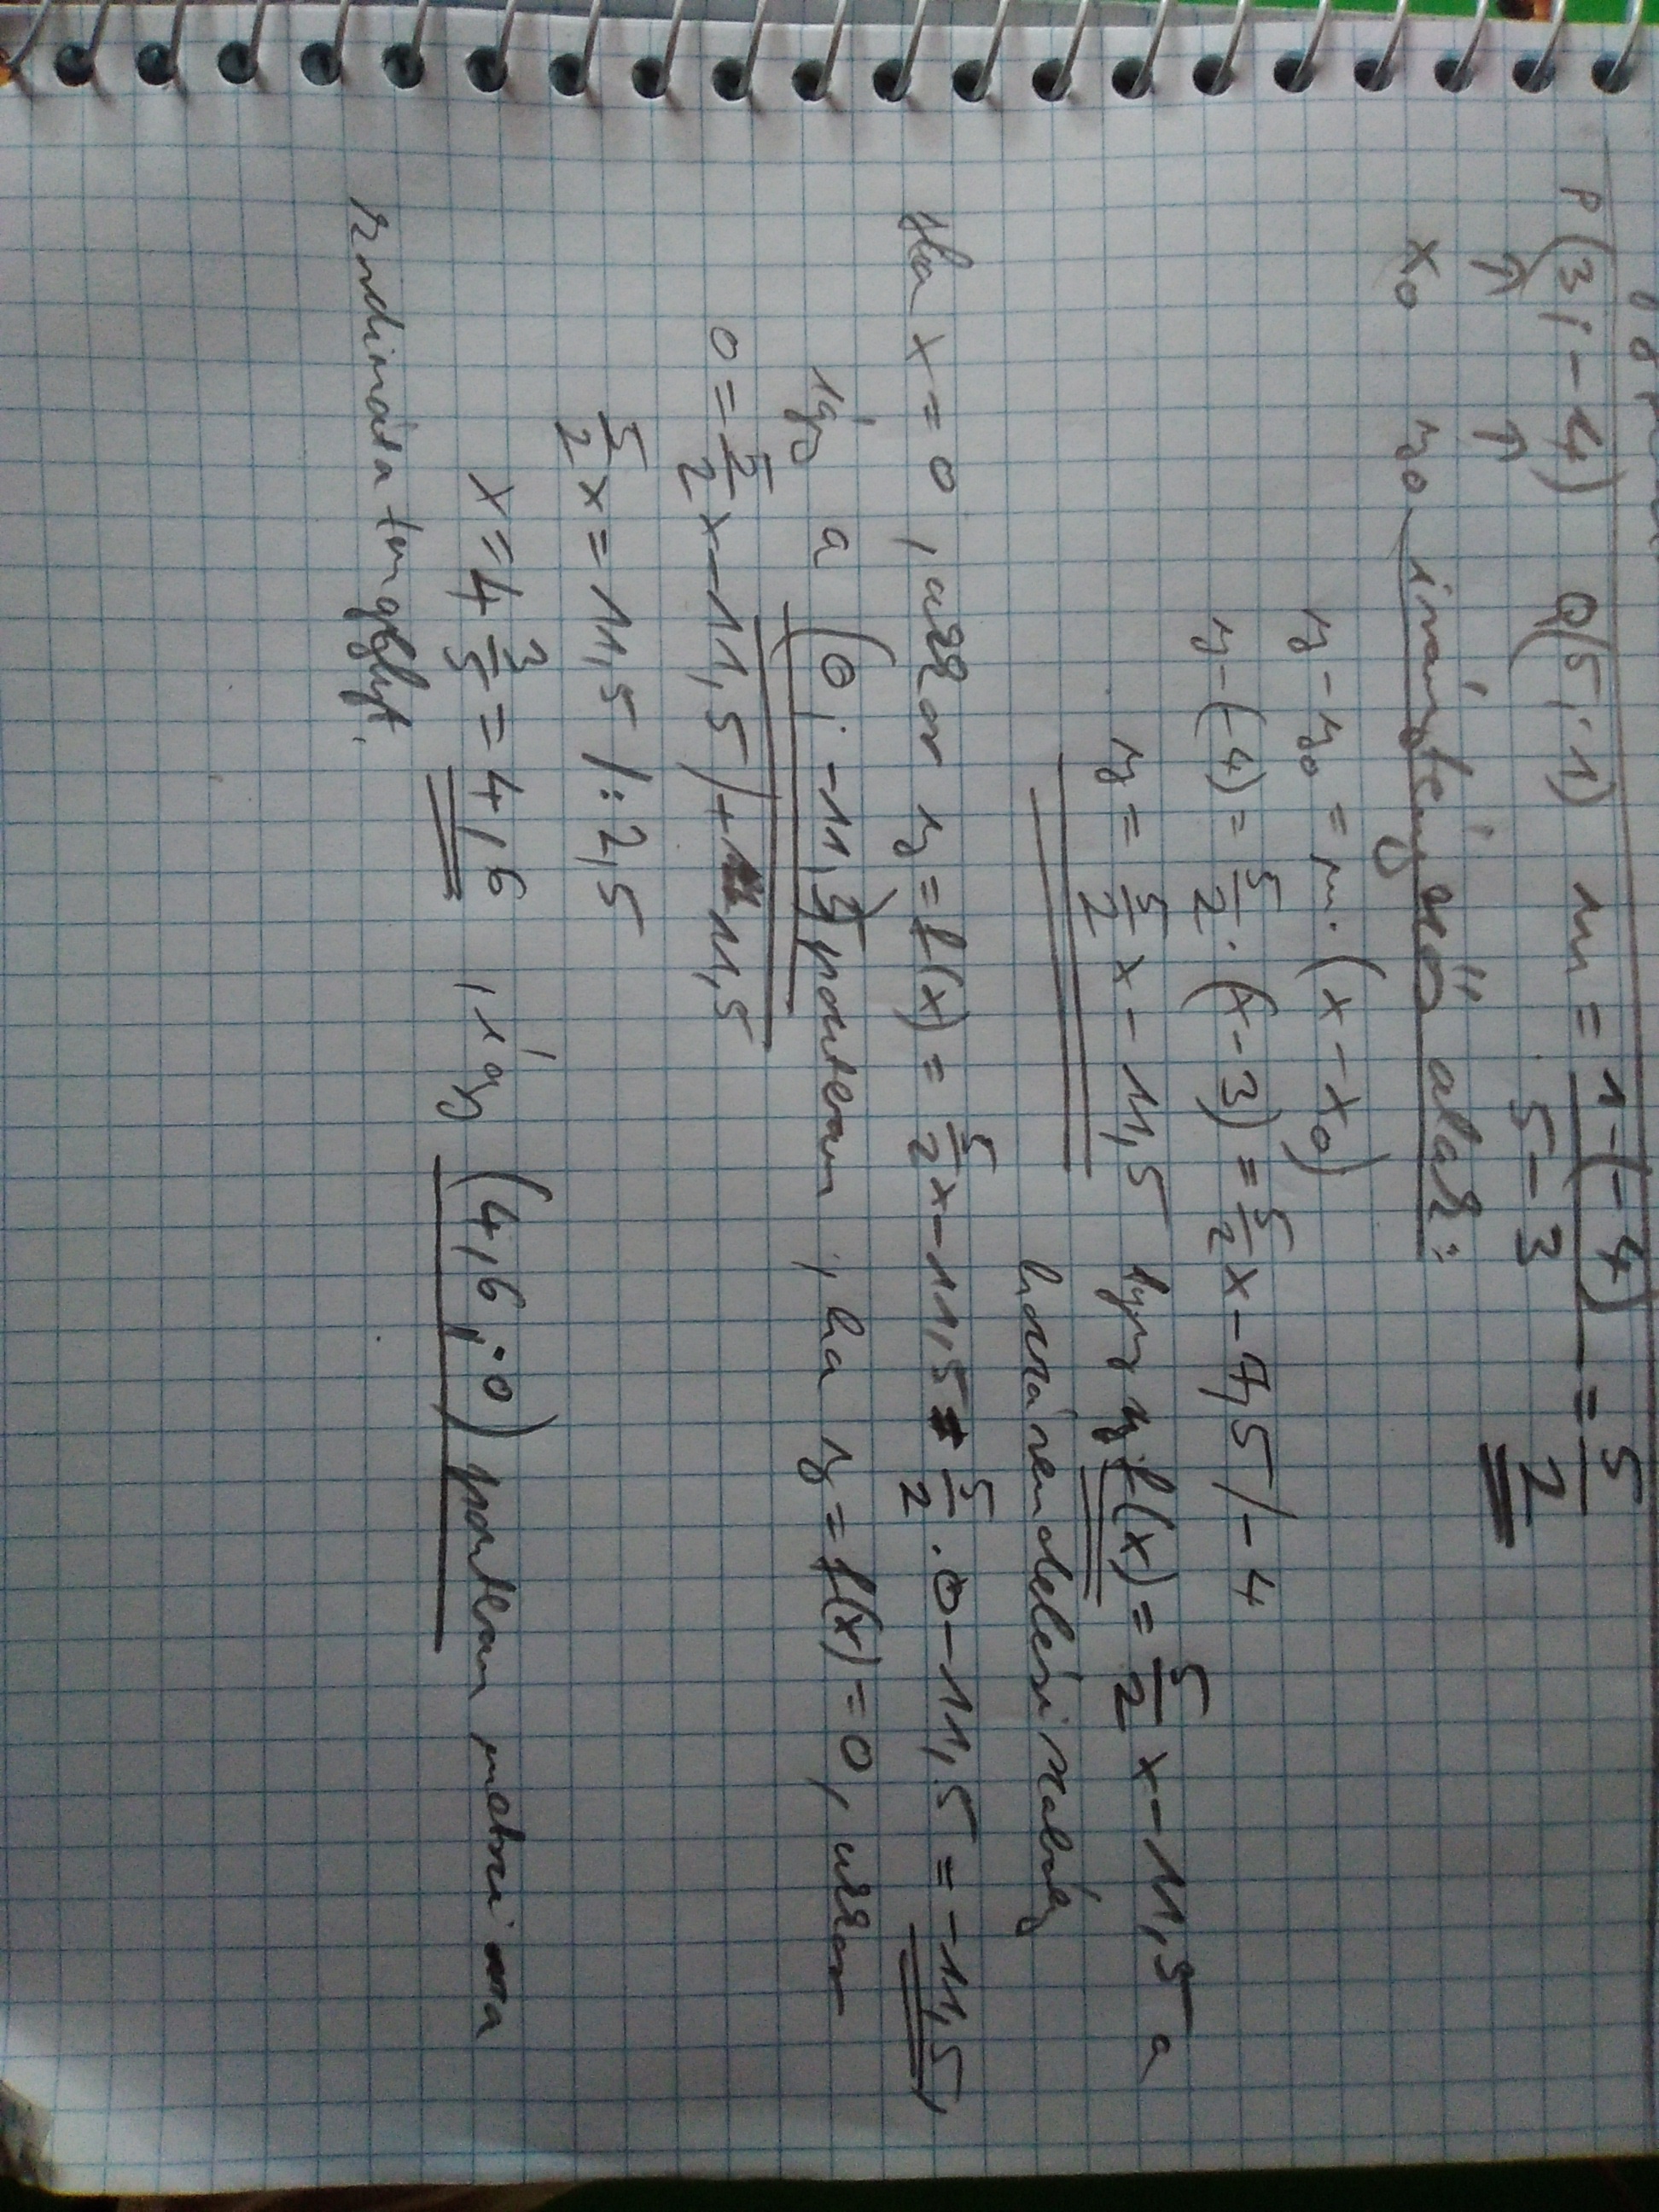 P(3; -4) Q(5; 1) m = \frac{1-(-4)}{5-3} = \frac{5}{2}
↑ ↑
x₀ y₀ iránytényezős alak:
y - y₀ = m · (x - x₀)
y - (-4) = \frac{5}{2} · (x - 3) = \frac{5}{2}x - 7,5 / -4
y = \frac{5}{2}x - 11,5 Így y f(x) = \frac{5}{2}x - 11,5 a
hozzárendelési szabály
Ha x = 0, akkor y = f(x) = \frac{5}{2}x - 11,5 = \frac{5}{2} · 0 - 11,5 = -11,5,
így a (0; -11,5) pontban, ha y = f(x) = 0, akkor
0 = \frac{5}{2}x - 11,5 / + 11,5
\frac{5}{2}x = 11,5 / : 2,5
x = 4\frac{3}{5} = 4,6, így (4,6; 0) pontban metszi a
koordináta tengelyt.